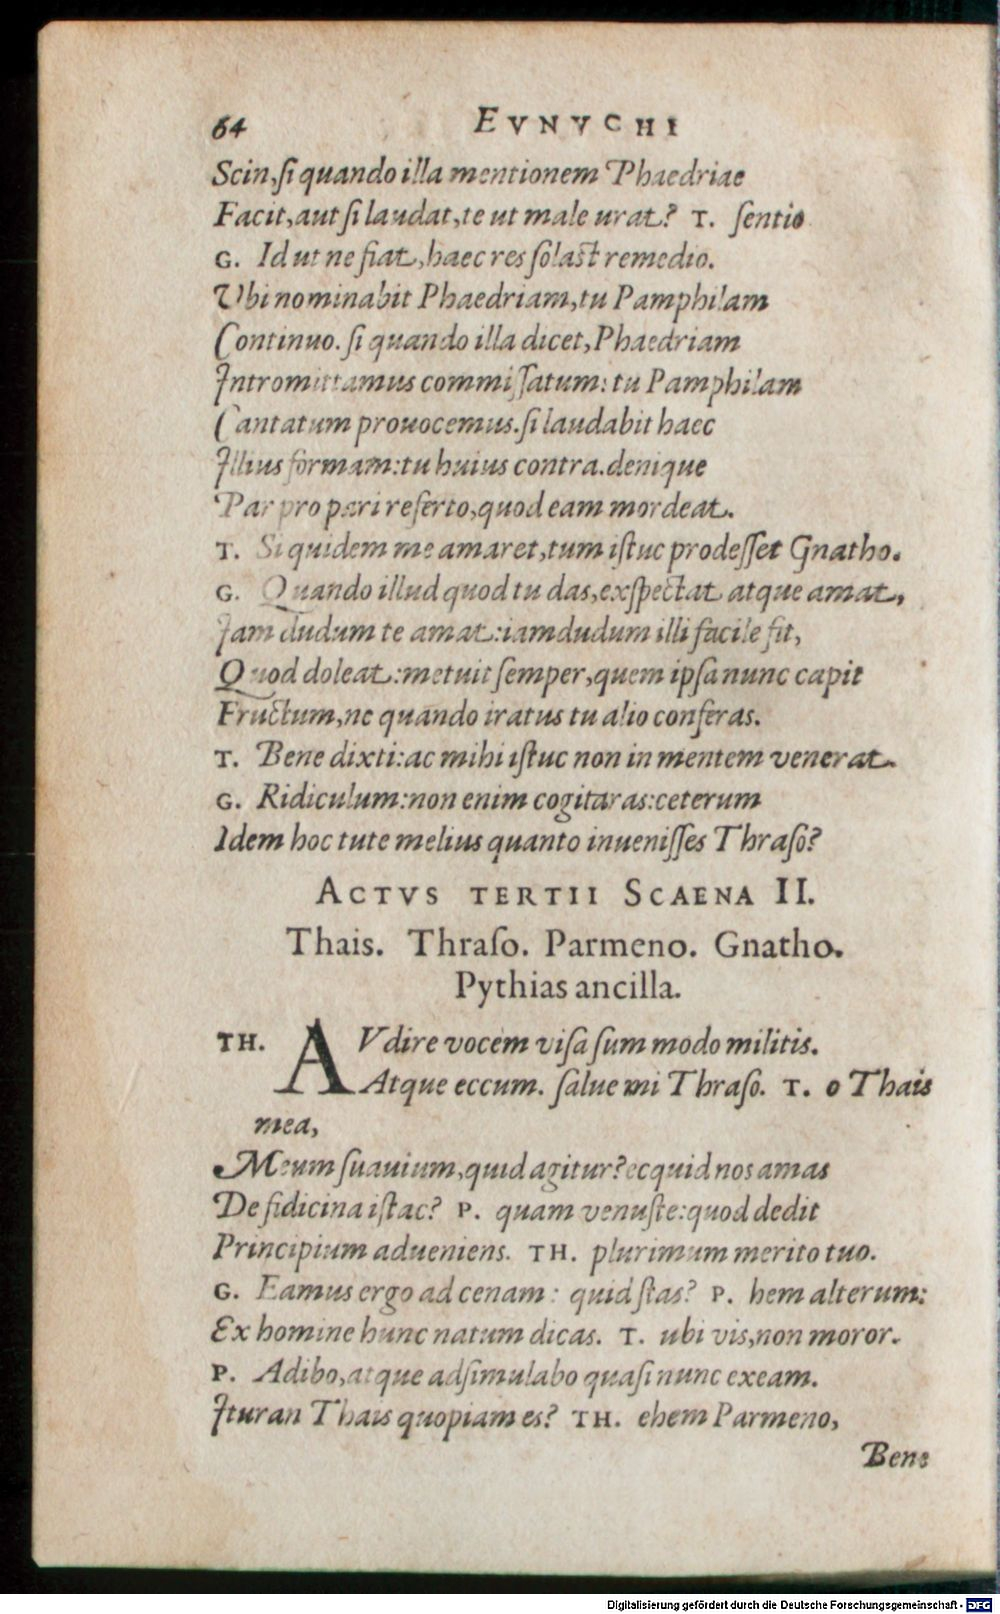 64 EVNVCHI
Scin, si quando illa mentionem Phaedriae
Facit, aut si laudat, te ut male urat? T. sentio
G. Id ut ne fiat, haec res solast remedio.
Vbi nominabit Phaedriam, tu Pamphilam
Continuo. si quando illa dicet, Phaedriam
Intromittamus commissatum: tu Pamphilam
Cantatum prouocemus. si laudabit haec
Illius formam: tu huius contra. denique
Par pro pari referto, quod eam mordeat.
T. Siquidem me amaret, tum istuc prodesset Gnatho.
G. Quando illud quod tu das, exspectat atque amat,
Iam dudum te amat: iamdudum illi facile fit,
Quod doleat: metuit semper, quem ipsa nunc capit
Fructum, ne quando iratus tu alio conferas.
T. Bene dixti: ac mihi istuc non in mentem venerat.
G. Ridiculum: non enim cogitaras: ceterum
Idem hoc tute melius quanto inuenisses Thraso?
ACTVS TERTII SCAENA II.
Thais. Thraso. Parmeno. Gnatho.
Pythias ancilla.
TH. AVdire vocem visa sum modo militis.
Atque eccum. salue mi Thraso. T. o Thais
mea,
Meum suauium, quid agitur? ecquid nos amas
De fidicina istac? P. quam venuste: quod dedit
Principium adueniens. TH. plurimum merito tuo.
G. Eamus ergo ad cenam: quid stas? P. hem alterum:
Ex homine hunc natum dicas. T. ubi vis, non moror.
P. Adibo, atque adsimulabo quasi nunc exeam.
Ituran Thais quopiam es? TH. ehem Parmeno,
Bene
Digitalisierung gefördert durch die Deutsche Forschungsgemeinschaft - DFG